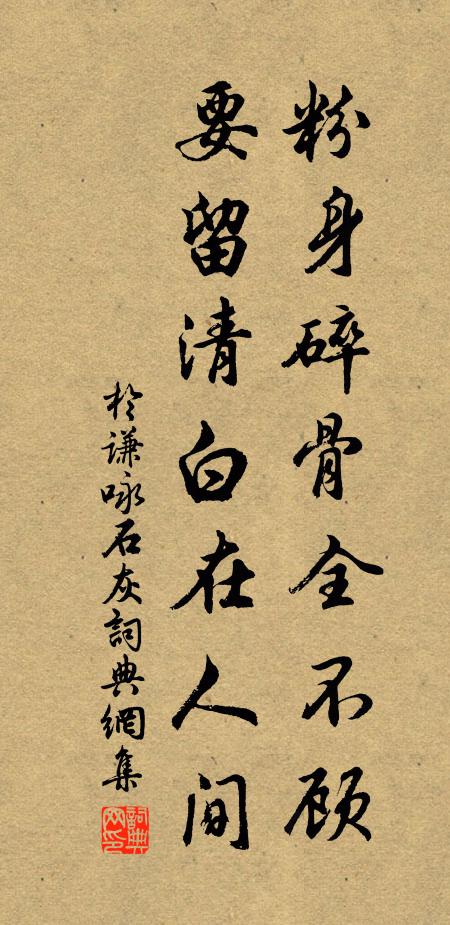 粉身碎骨全不顾
要留清白在人间
於谦咏石灰詞典網集
詞典网印